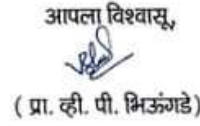 आपला विश्वासू,
( प्रा. व्ही. पी. भिऊंगडे )